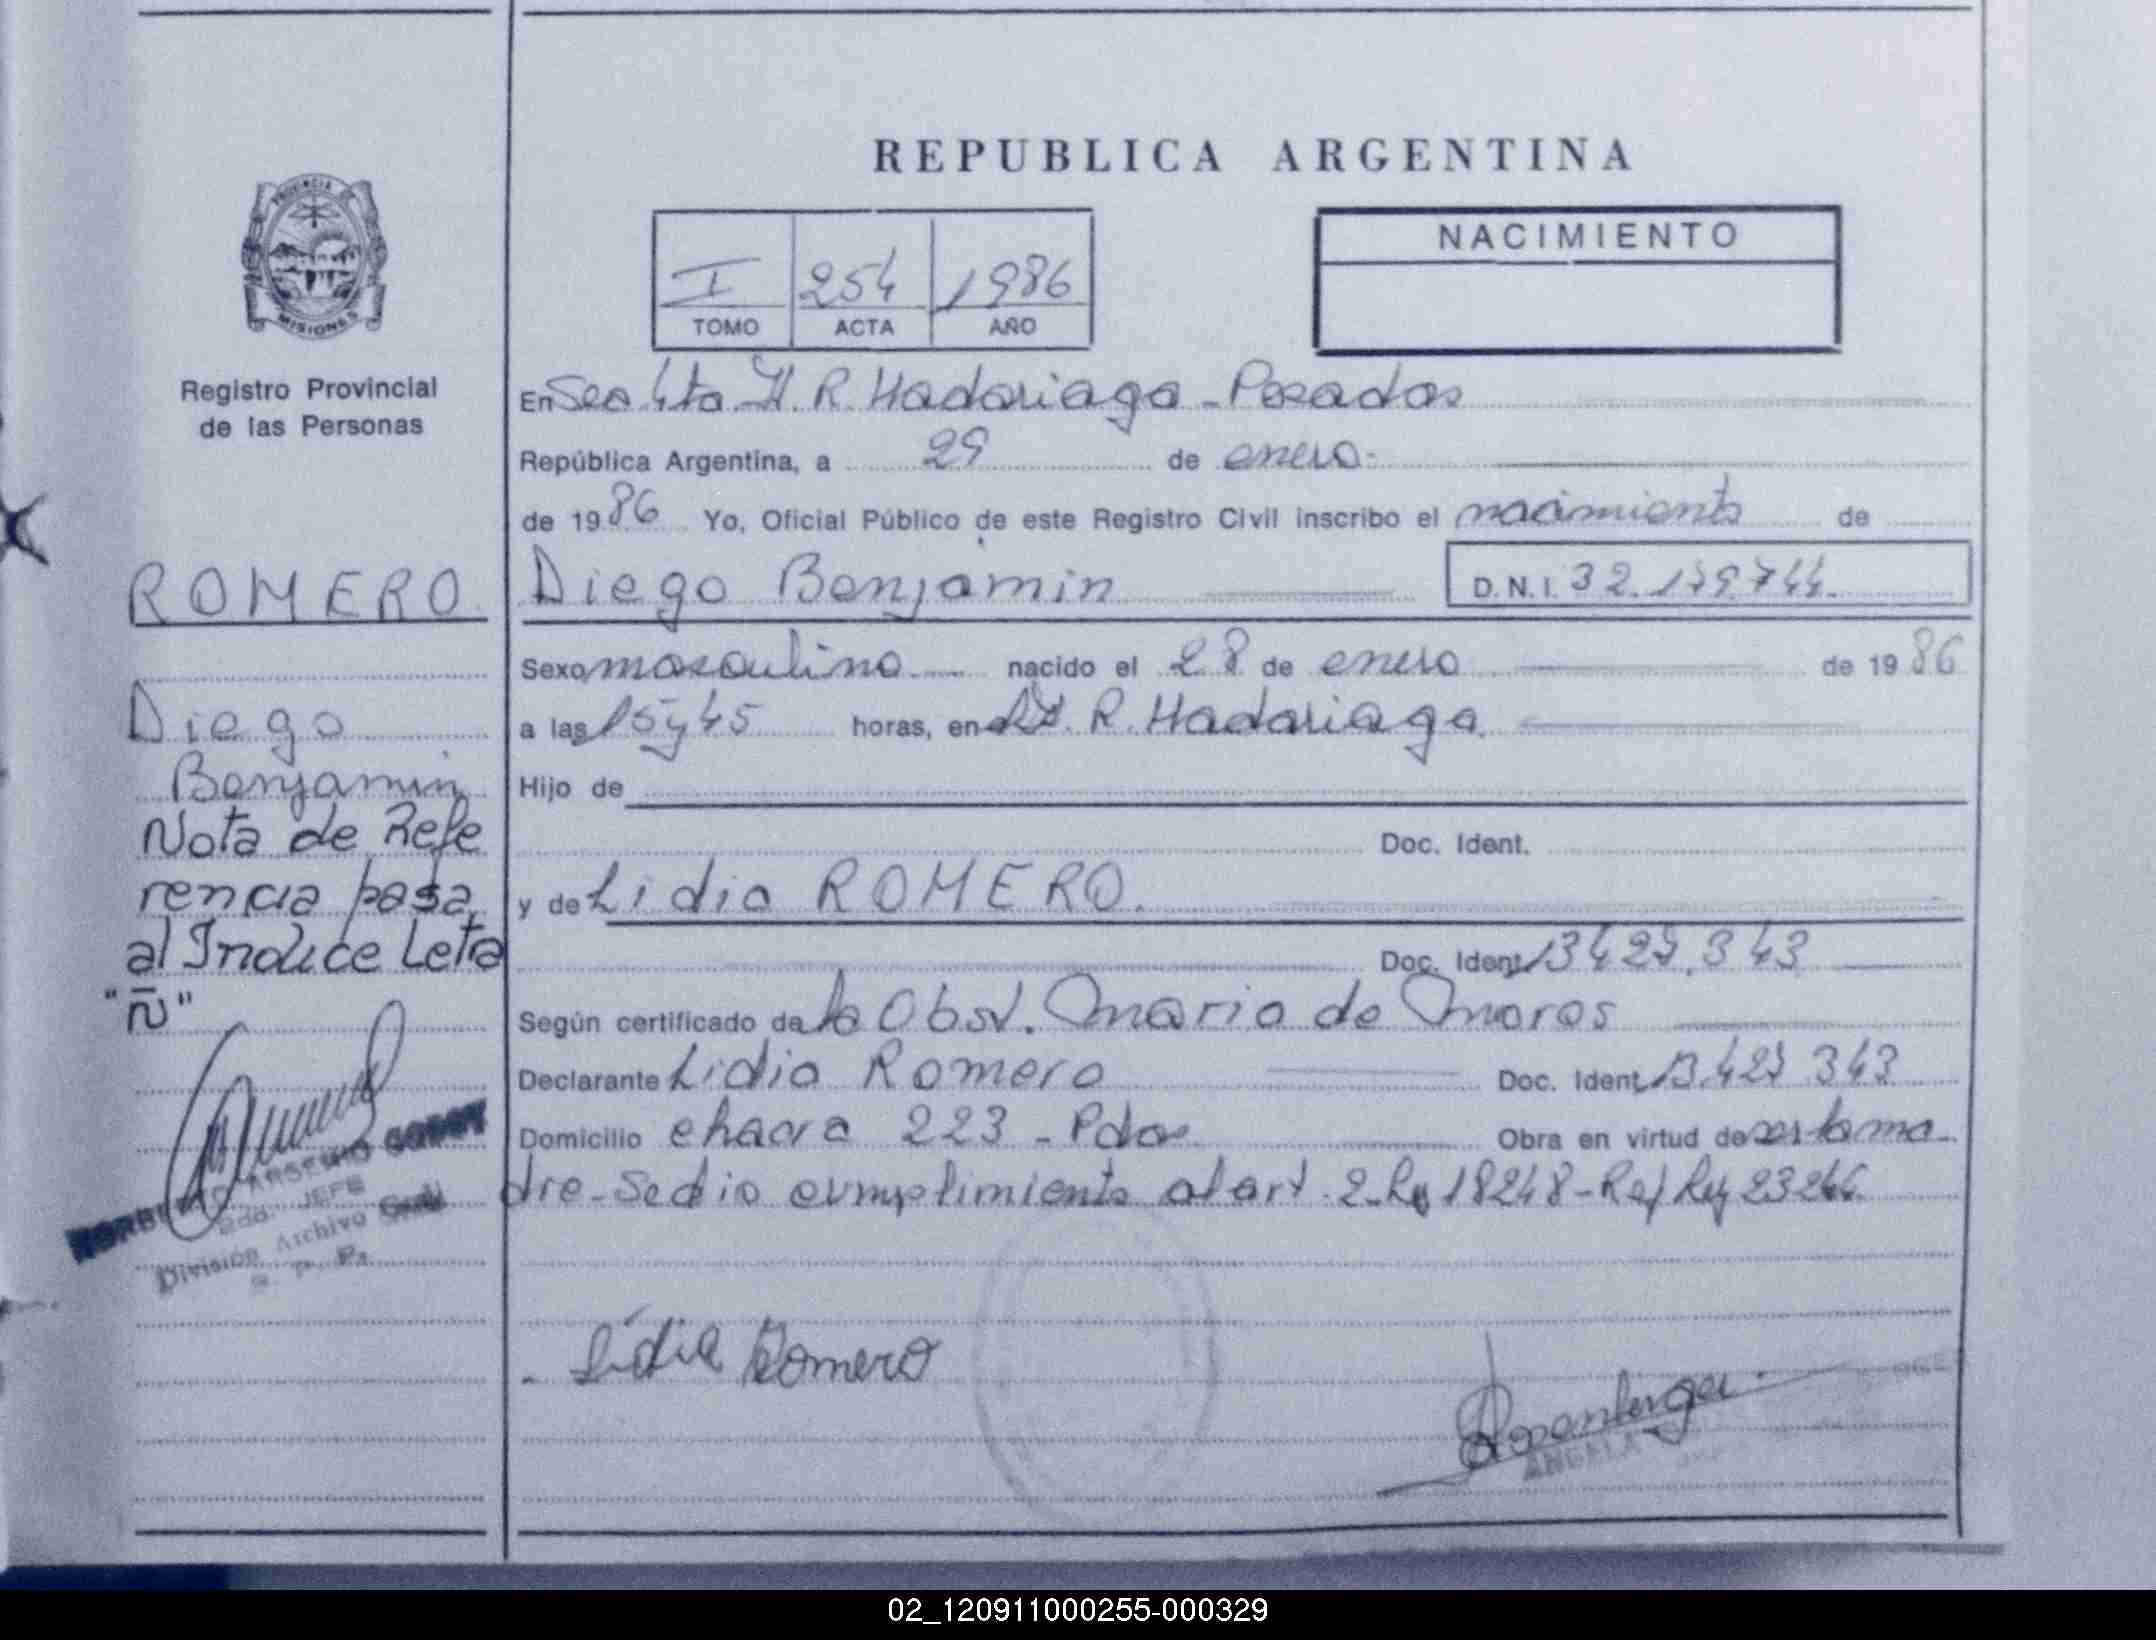 REPUBLICA ARGENTINA
PROVINCIA DE
MISIONES
I 254 1986
TOMO ACTA AÑO
NACIMIENTO
Registro Provincial
de las Personas
ROMERO
Diego
Benjamin
Nota de Refe
rencia pasa
al Indice Letra
"Ñ"
ARSENIO
2do. JEFE
División Archivo Gral
R. P. P.
En Sec 4ta H. R. Madariaga - Posadas
República Argentina, a 29 de enero
de 1986 Yo, Oficial Público de este Registro Civil inscribo el nacimiento de
Diego Benjamin D.N.I. 32.179.744
Sexo masculino nacido el 28 de enero de 1986
a las 15 y 45 horas, en el H. R. Madariaga
Hijo de
Doc. Ident.
y de Lidia ROMERO.
Doc. Ident. 13427.343
Según certificado de la Obst. Maria de Moros
Declarante Lidia Romero Doc. Ident. 13.427 343
Domicilio chacra 223 - Pdas Obra en virtud de ser la ma-
dre - Se dio cumplimiento al art. 2 - Ley 18248 - Ref Ley 23264
Lidia Romero
ANGELA
02_120911000255-000329